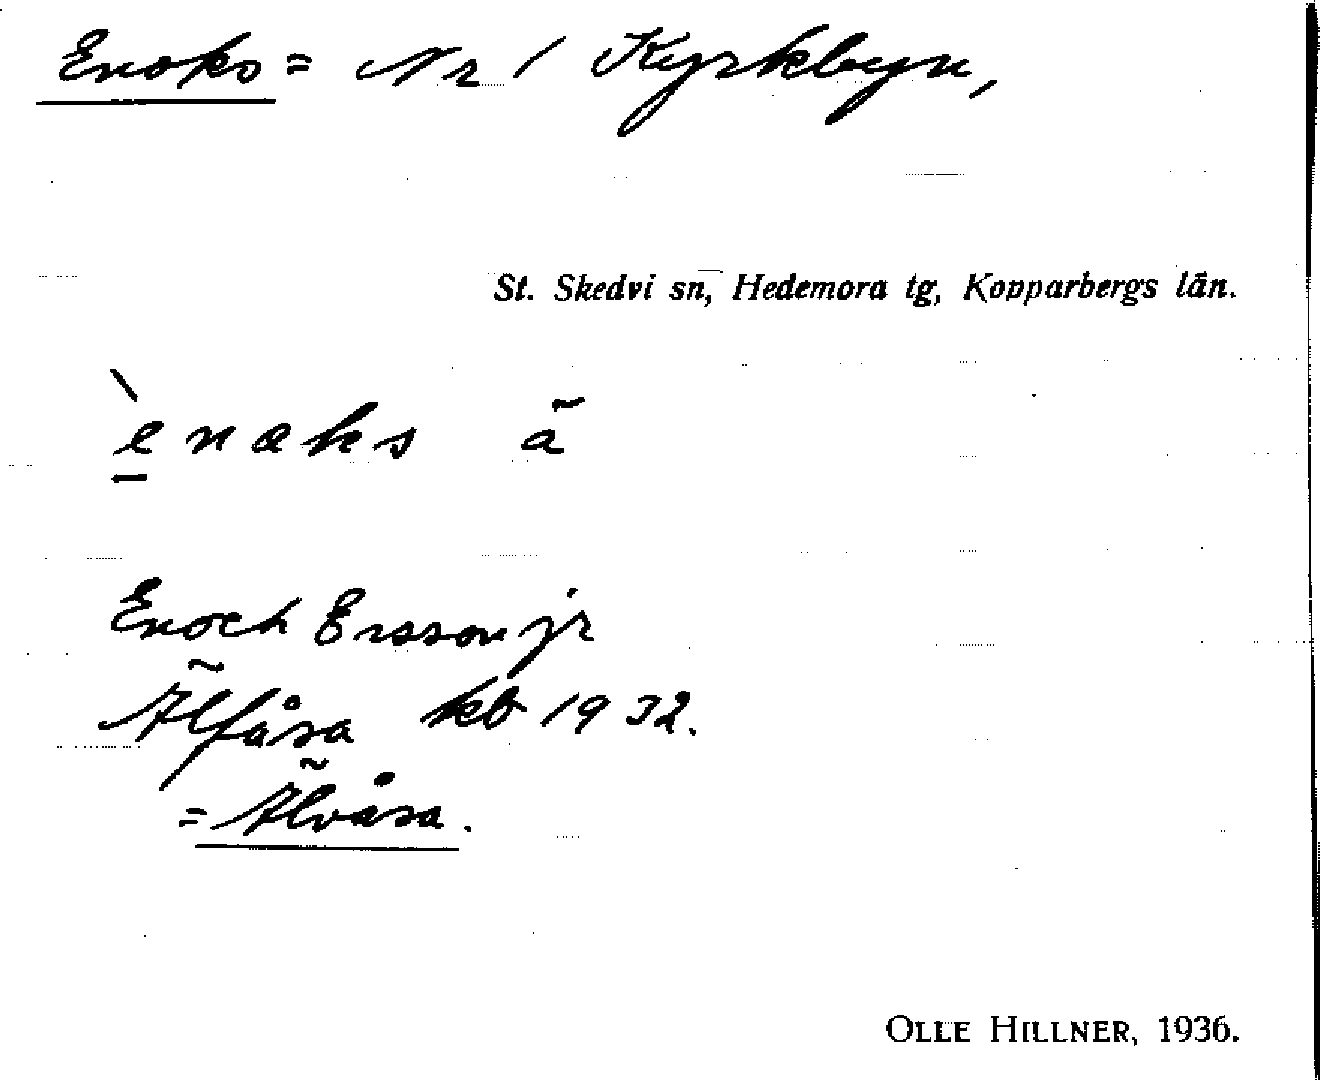 Enoks = Nr 1 Kyrkbyn,
St. Skedvi sn, Hedemora tg, Kopparbergs län.
ènaks ã
Enoch Ersson jr
Älfåsa kb 1932.
= Älvåsa.
OLLE HILLNER, 1936.